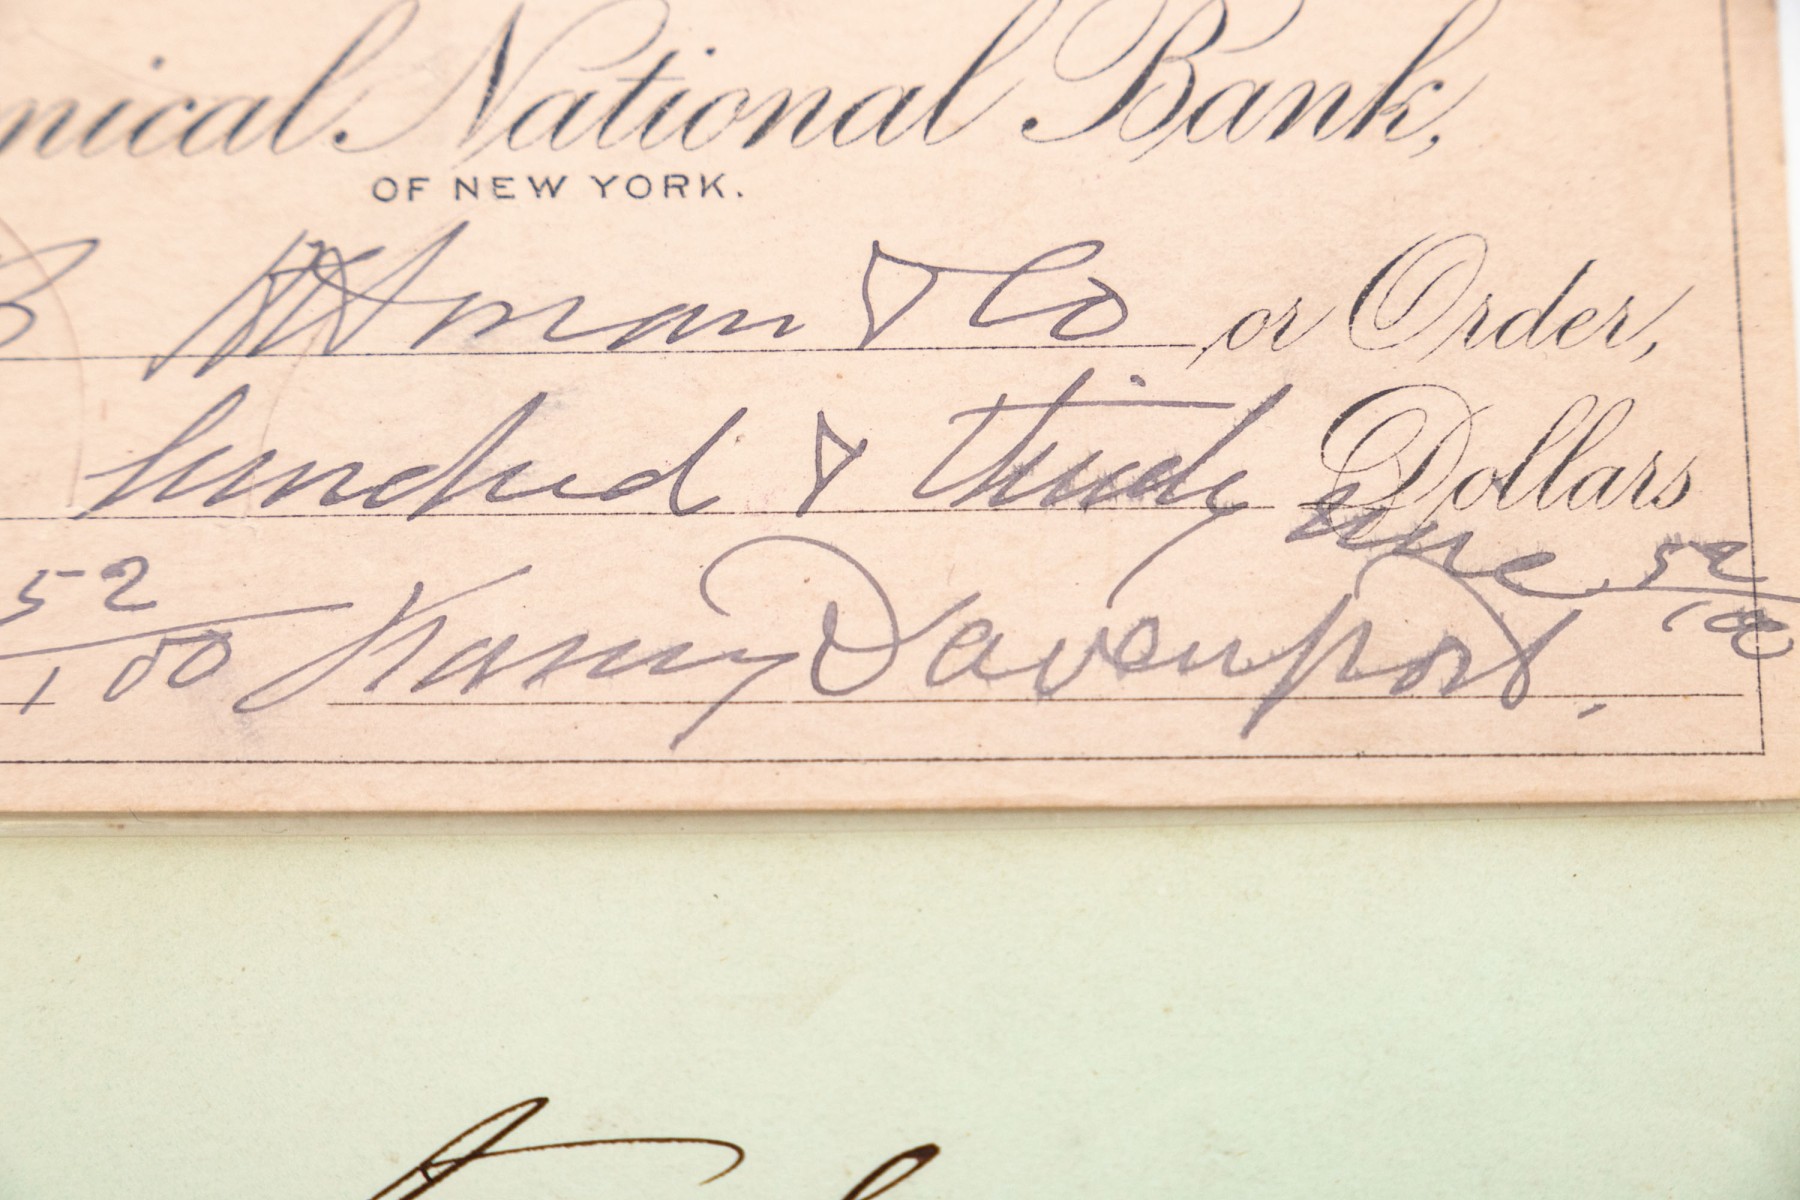 nical National Bank,
OF NEW YORK.
B Altman & Co or Order,
hundred & thirty Dollars
nine 52/100
52/100 Fanny Davenport.